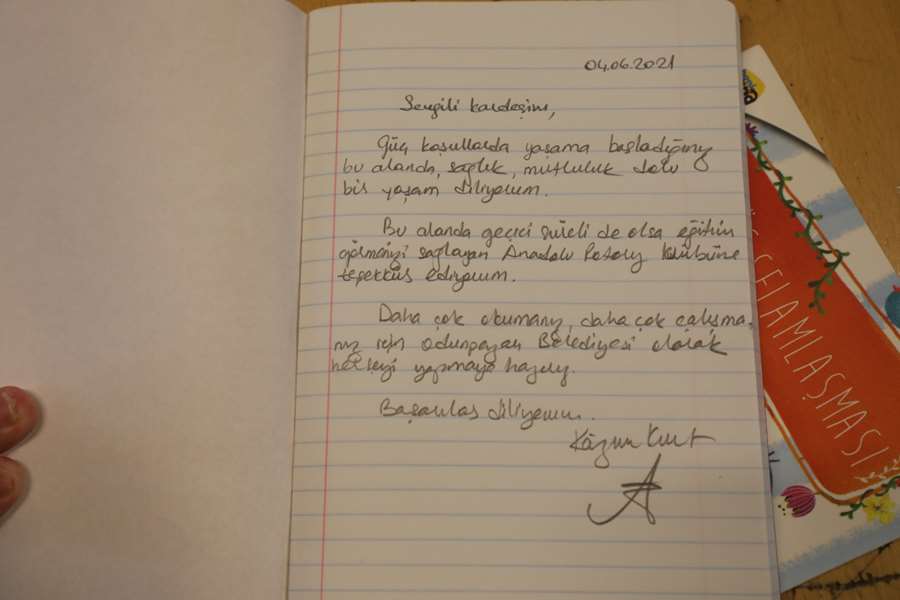 04.06.2021
Sevgili kardeşim,
Güç koşullarda yaşama başladığınız
bu alanda, sağlık, mutluluk dolu
bir yaşam diliyorum.
Bu alanda geçici süreli de olsa eğitim
görmenizi sağlayan Anadolu Rotary Kulübüne
teşekkür ediyorum.
Daha çok okumanız, daha çok çalışma-
nız için Odunpazarı Belediyesi olarak
herşeyi yapmaya hazırız.
Başarılar diliyorum.
Kazım Kurt
SELAMLAŞMASI